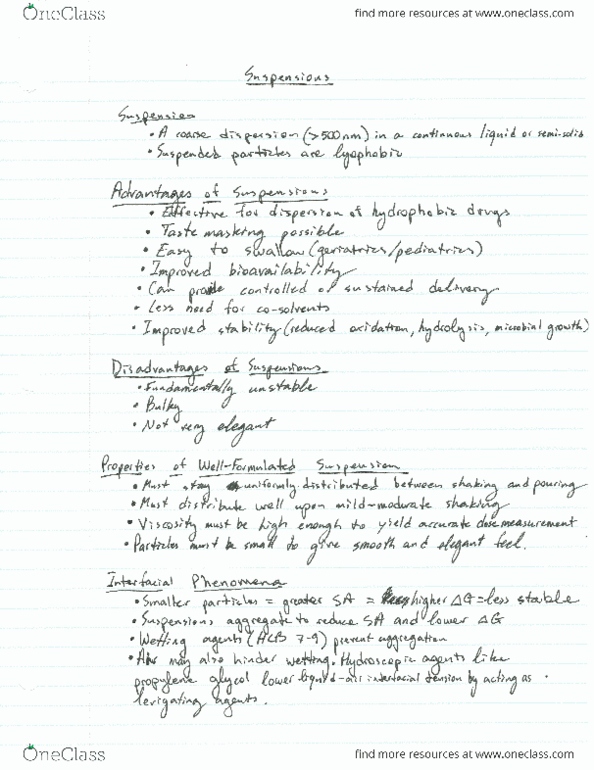 OneClass
find more resources at www.oneclass.com
Suspensions
Suspension
• A coarse dispersion (>500nm) in a continuous liquid or semi-solid
• Suspended particles are lyophobic
Advantages of Suspensions
• Effective for dispersion of hydrophobic drugs
• Taste masking possible
• Easy to swallow (geriatrics/pediatrics)
• Improved bioavailability
• Can controlled or sustained delivery
• Less need for co-solvents
• Improved stability (reduced oxidation, hydrolysis, microbial growth)
Disadvantages of Suspensions
• Fundamentally unstable
• Bulky
• Not very elegant
Properties of Well-Formulated Suspension
• Must stay uniformly distributed between shaking and pouring
• Must distribute well upon mild-moderate shaking
• Viscosity must be high enough to yield accurate dose measurement
• Particles must be small to give smooth and elegant feel.
Interfacial Phenomena
• Smaller particles = greater SA = higher ΔG = less stable
• Suspensions aggregate to reduce SA and lower ΔG
• Wetting agents (HLB 7-9) prevent aggregation
• Air may also hinder wetting. Hydroscopic agents like
propylene glycol lower liquid-air interfacial tension by acting as
levigating agents.
OneClass
find more resources at www.oneclass.com